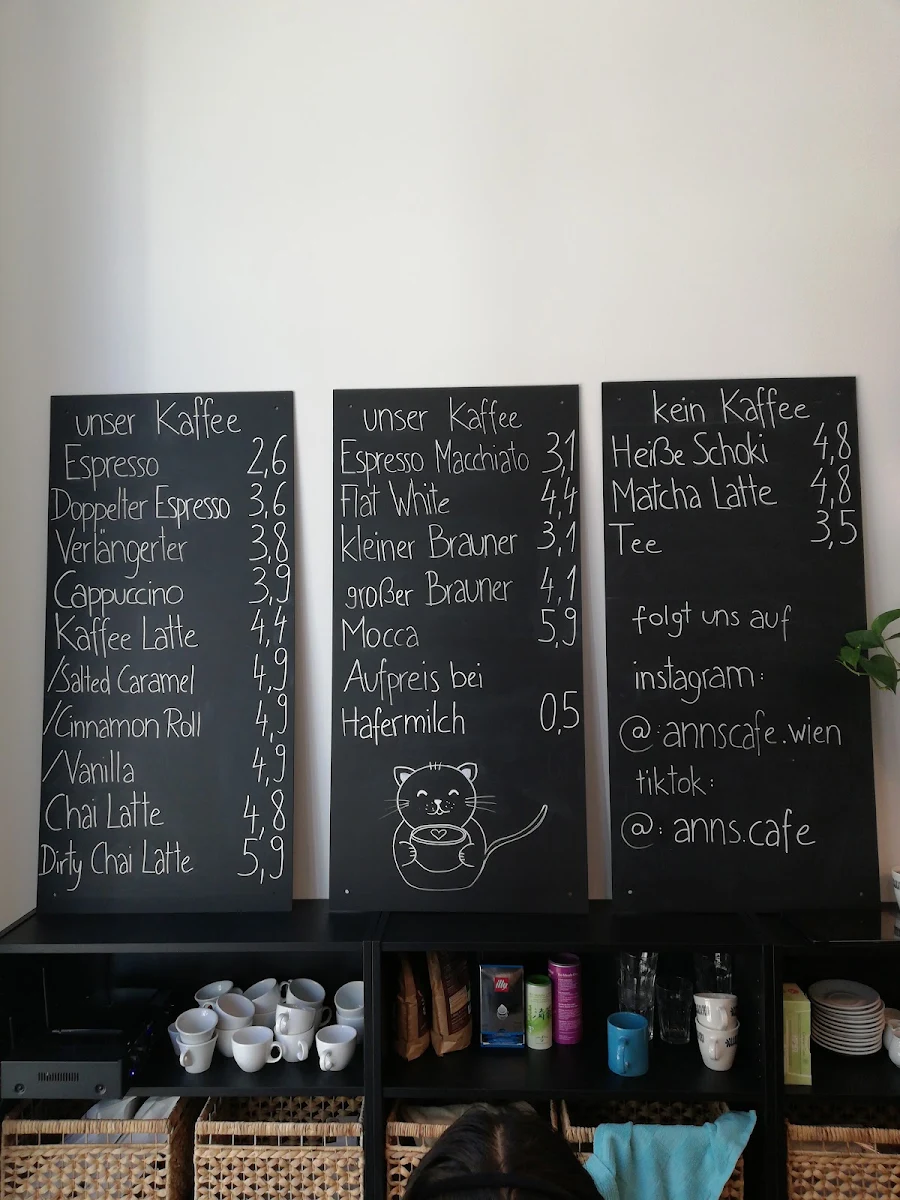 unser Kaffee
Espresso 2,6
Doppelter Espresso 3,6
Verlängerter 3,8
Cappuccino 3,9
Kaffee Latte 4,4
/Salted Caramel 4,9
/Cinnamon Roll 4,9
/Vanilla 4,9
Chai Latte 4,8
Dirty Chai Latte 5,9
unser Kaffee
Espresso Macchiato 3,1
Flat White 4,4
kleiner Brauner 3,1
großer Brauner 4,1
Mocca 5,9
Aufpreis bei
Hafermilch 0,5
kein Kaffee
Heiße Schoki 4,8
Matcha Latte 4,8
Tee 3,5
folgt uns auf
instagram:
@: annscafe.wien
tiktok:
@: anns.cafe
illy